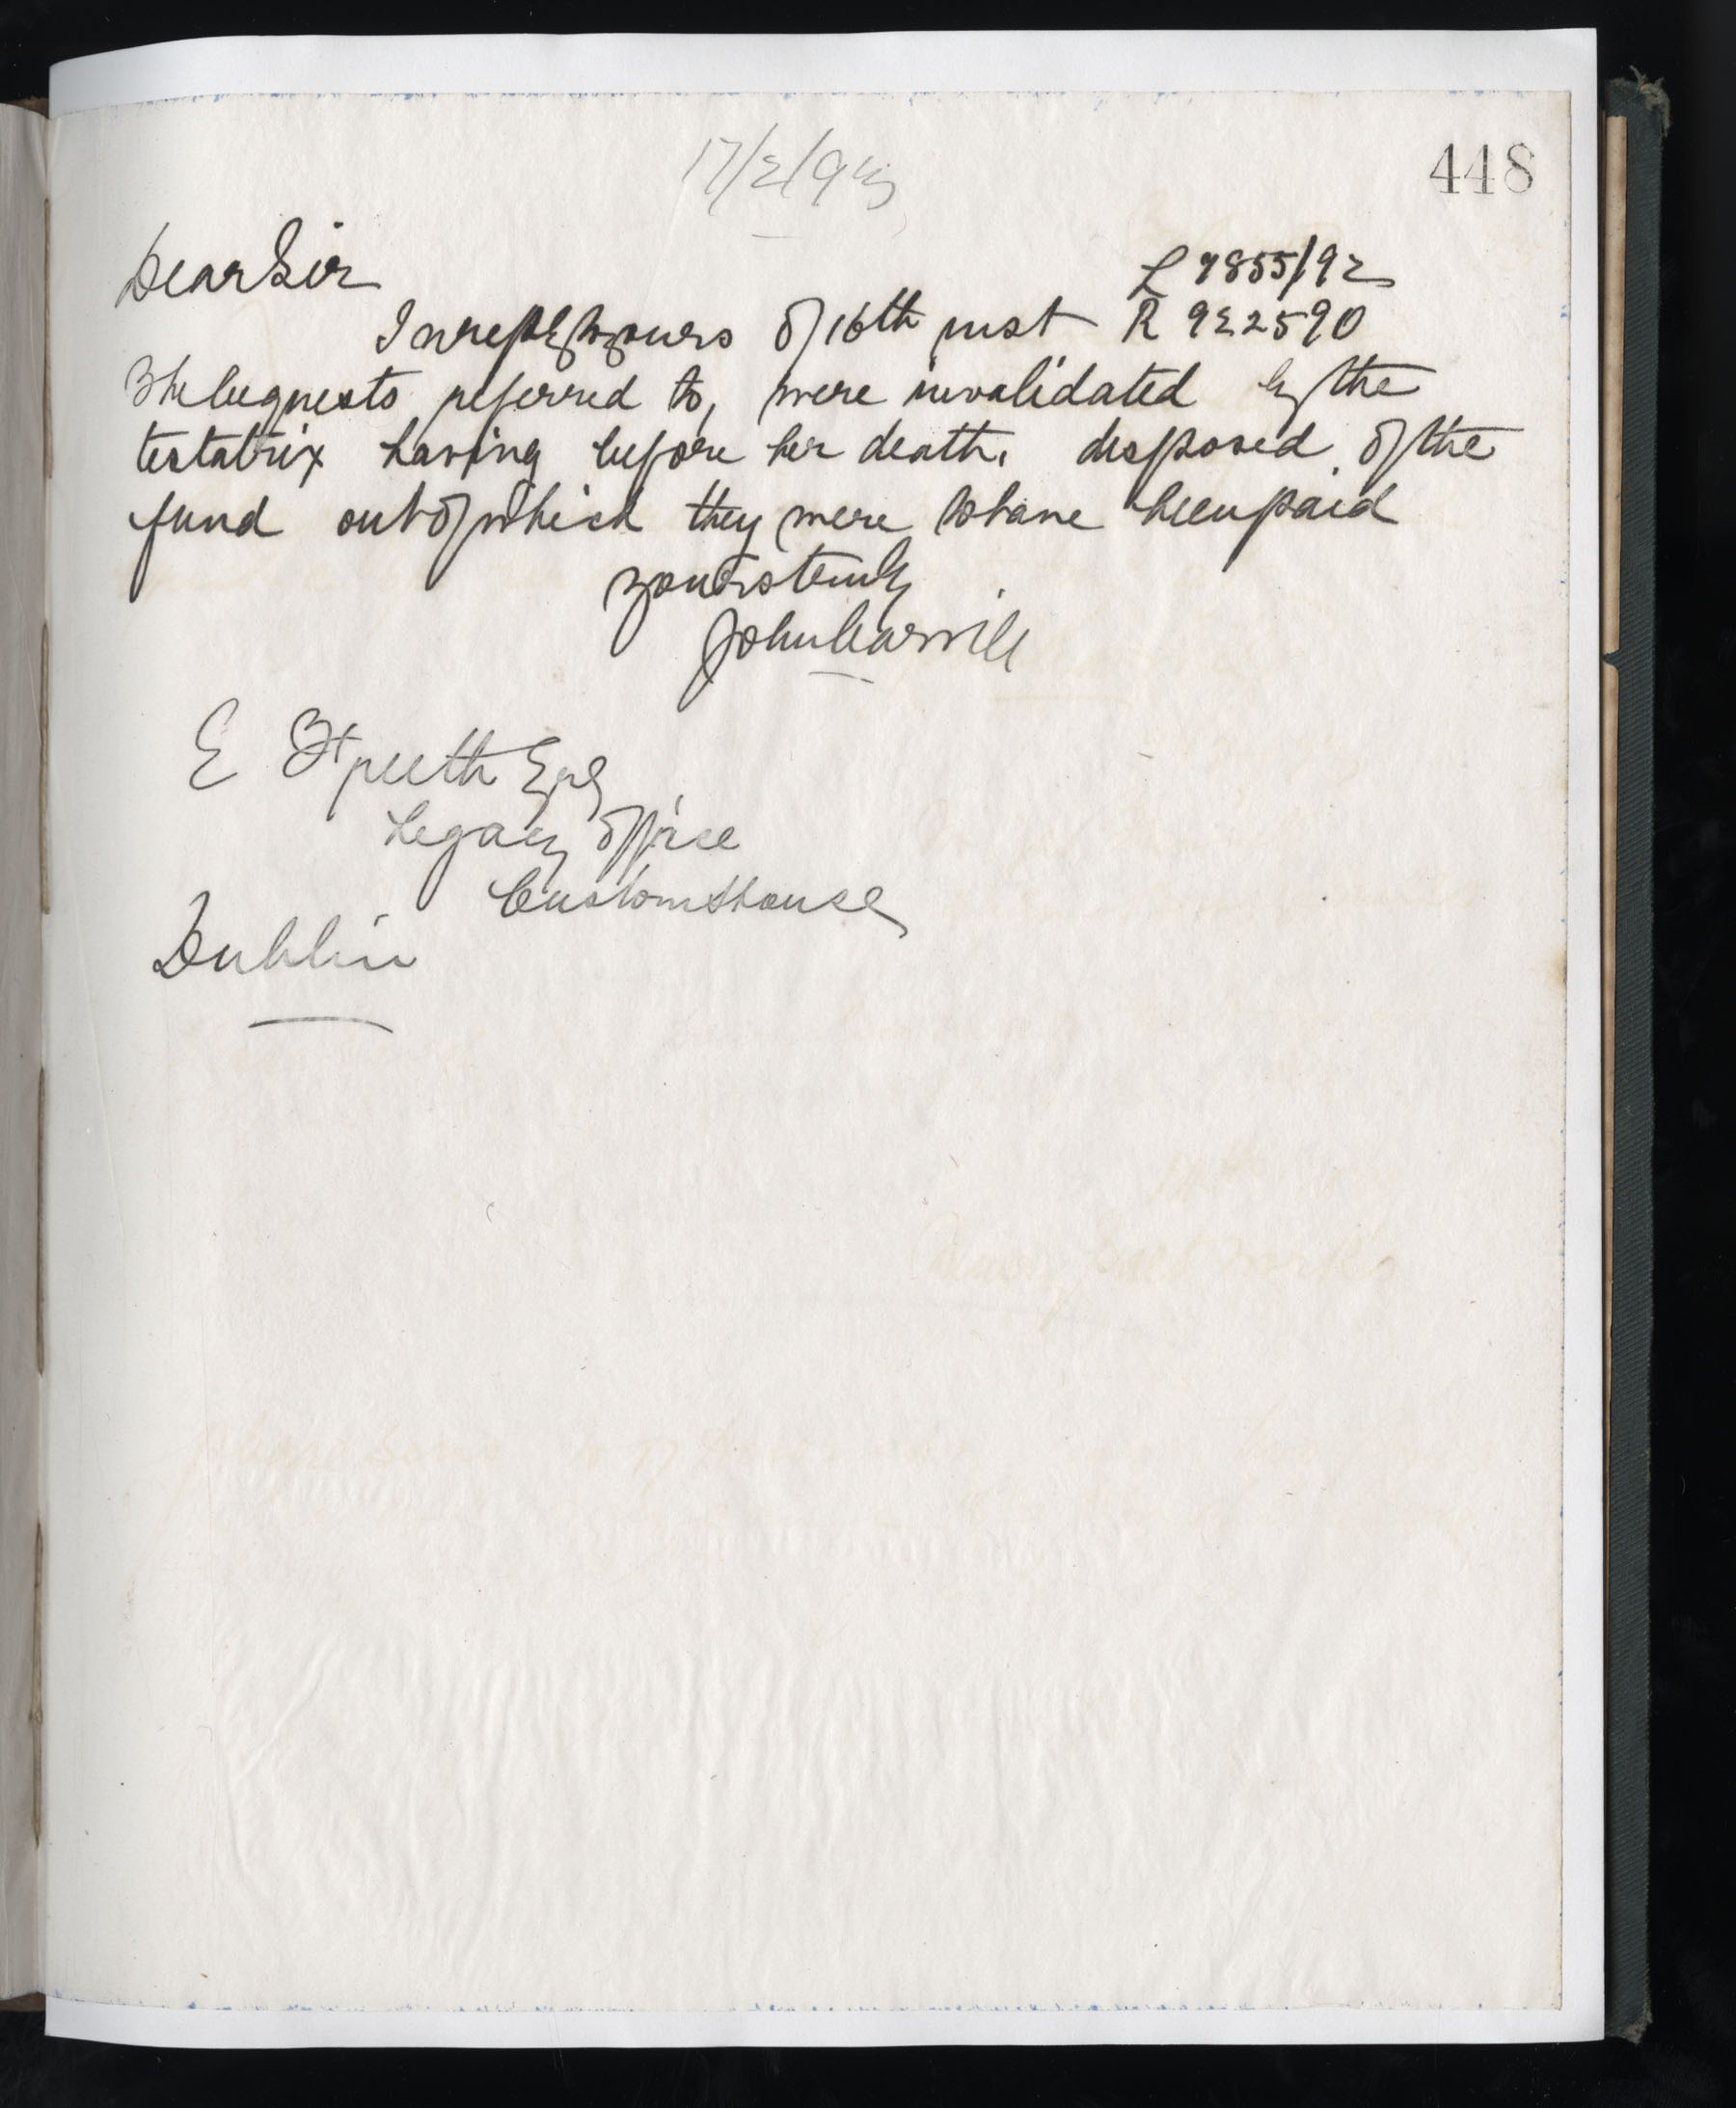 448
17/2/93
Dear Sir
L 7855/92
In reply to yours of 16th inst R 922590
The bequests referred to, were invalidated by the
testatrix having before her death, disposed of the
fund out of which they were to have been paid
Yours truly
John Carvill
E
Legacy Office
Customs House
Dublin